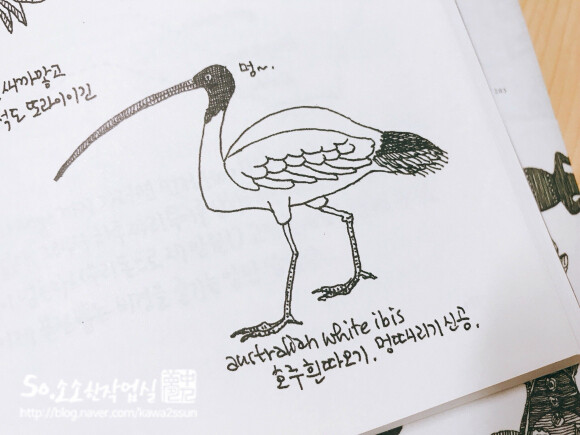 새까맣고
도 또라이이긴
멍~.
australian white ibis
호주흰따오기. 멍때리기신공.
So.소소한작업실
http://blog.naver.com/kawa2ssun